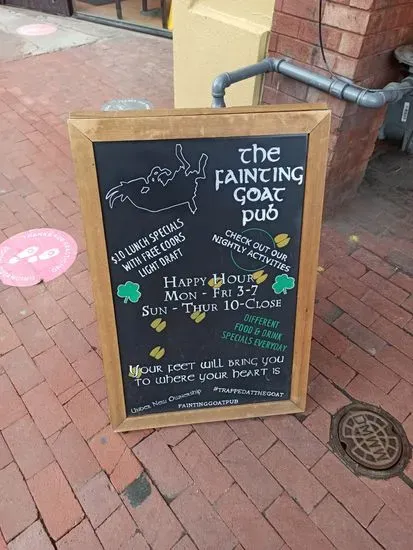 The
Fainting
Goat
Pub
$10 LUNCH SPECIALS
WITH FREE COORS
LIGHT DRAFT
CHECK OUT OUR
NIGHTLY ACTIVITIES
Happy Hour
Mon - Fri 3-7
Sun - Thur 10-Close
DIFFERENT
FOOD & DRINK
SPECIALS EVERYDAY
Your feet will bring you
to where your heart is
Under New Ownership
#TRAPPEDATTHEGOAT
FAINTINGGOATPUB